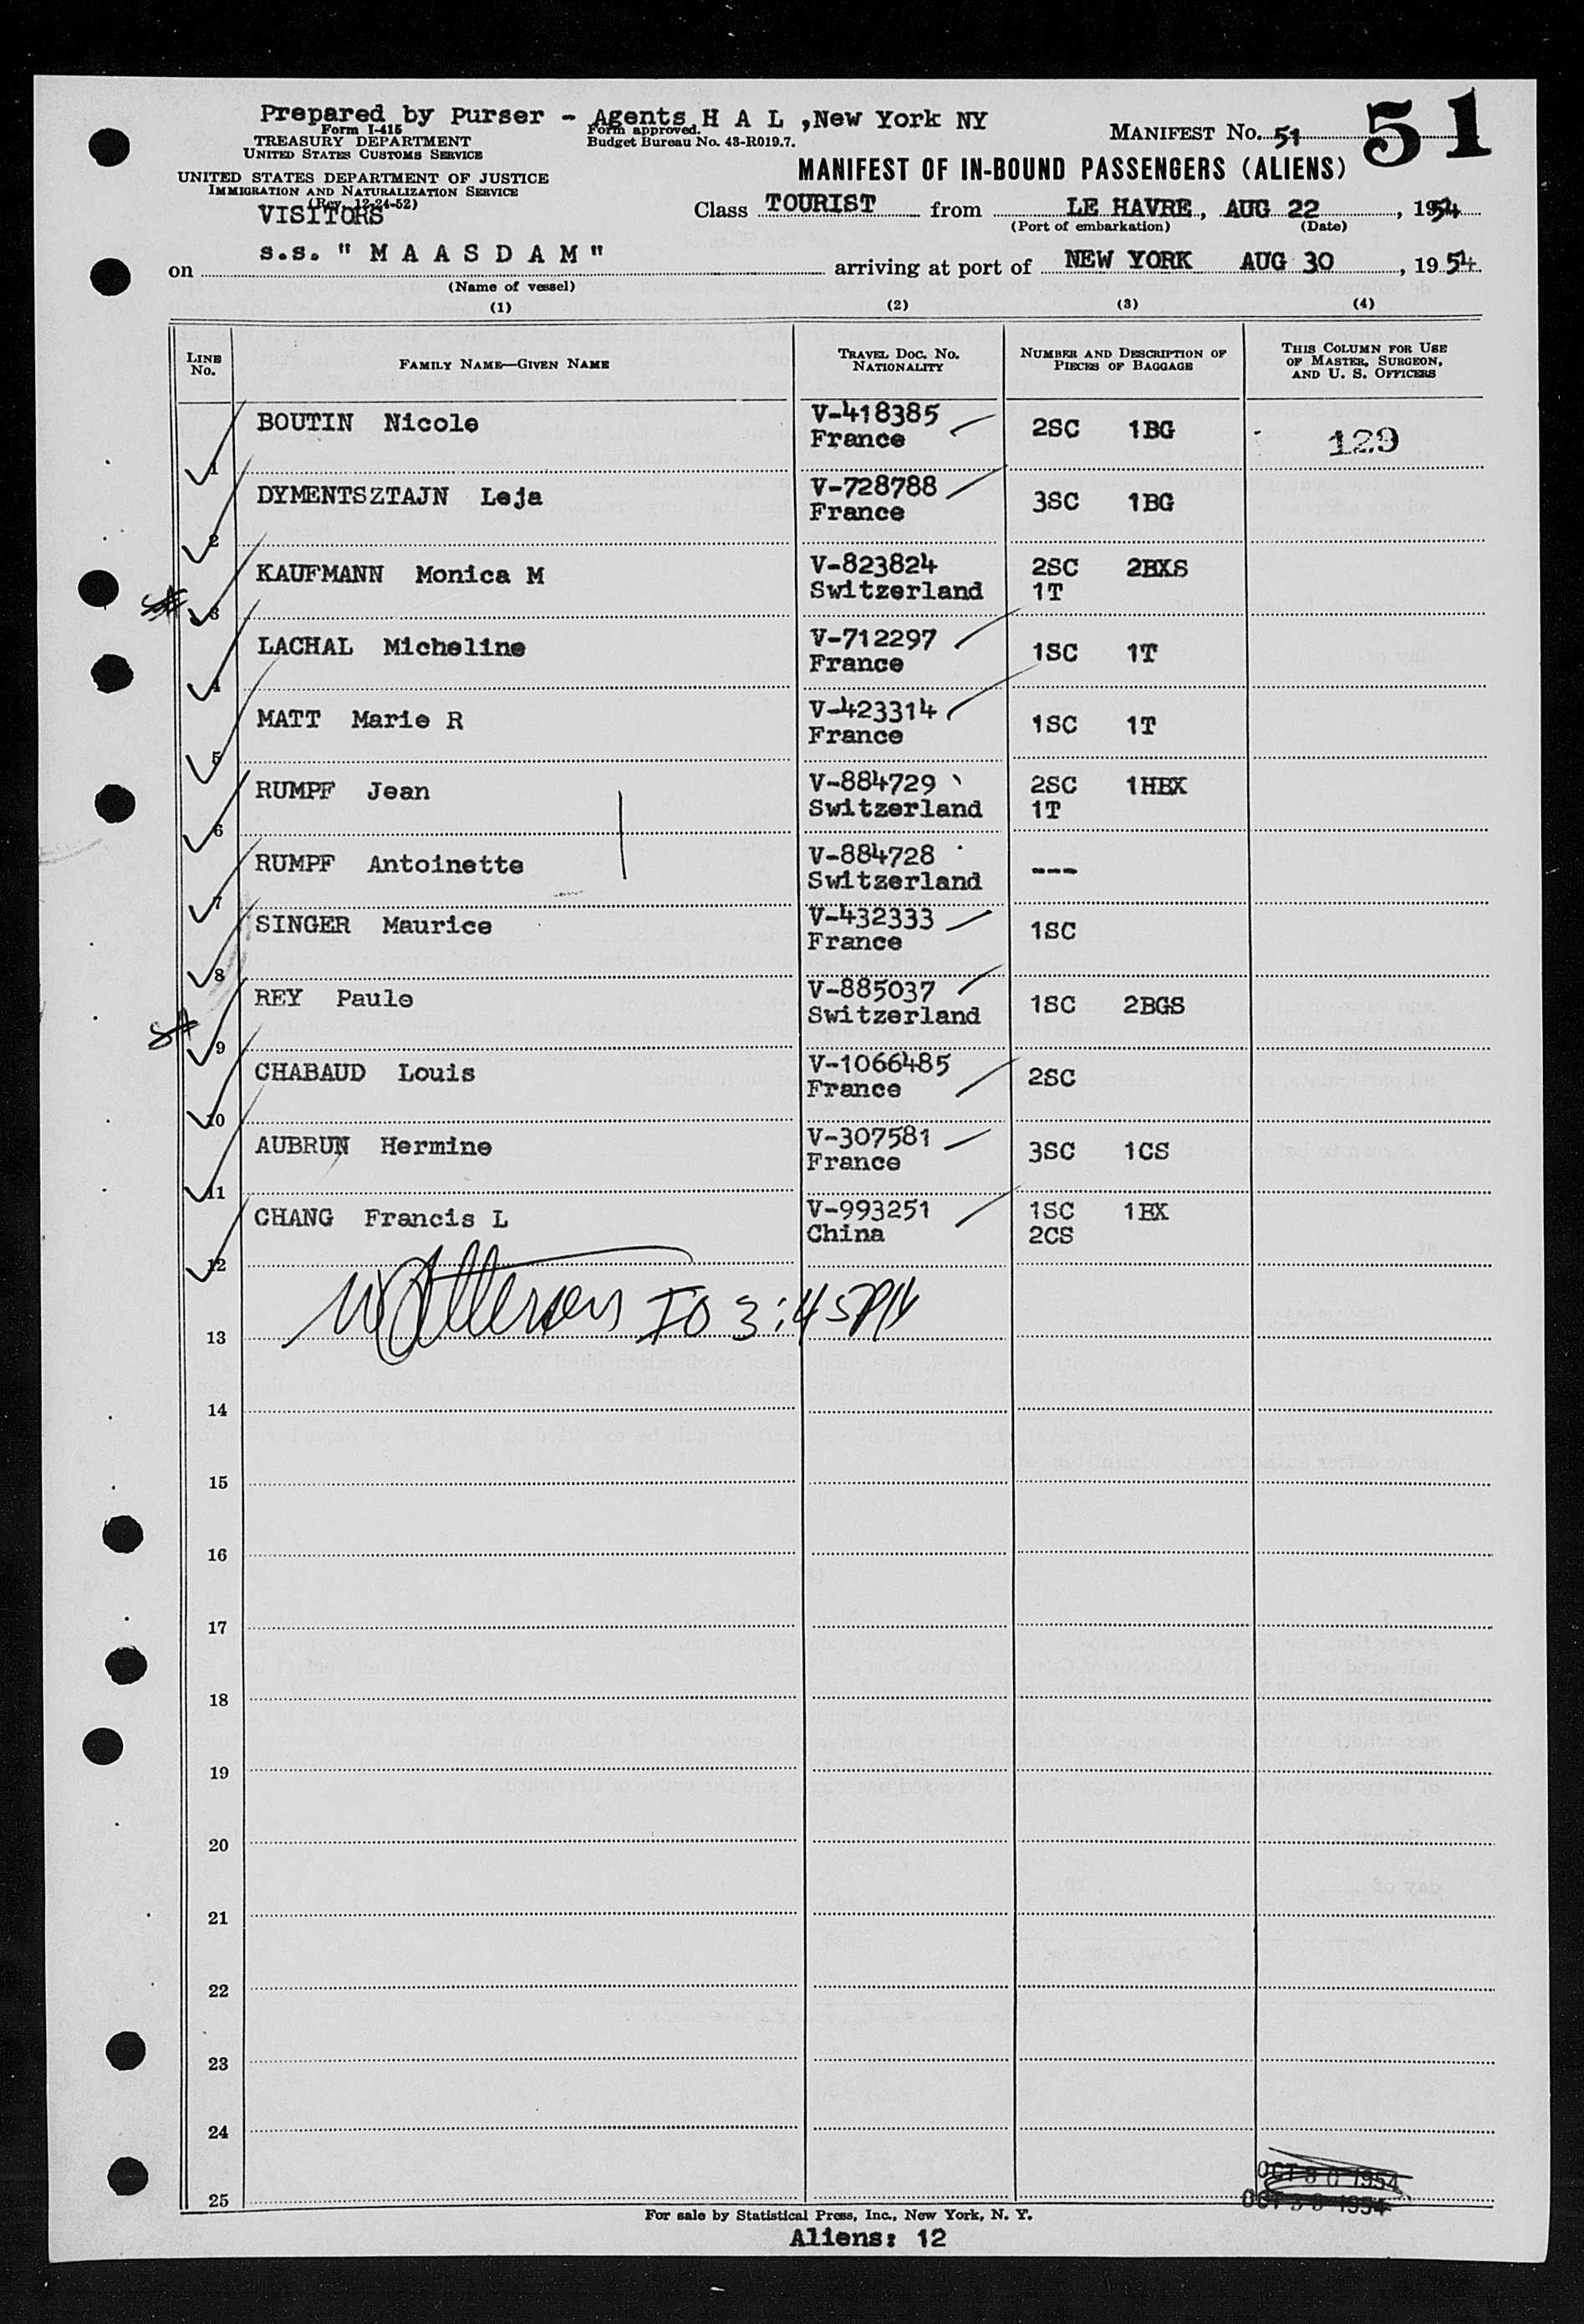 Prepared by Purser - Agents H A L ,New York NY
Form I-415
TREASURY DEPARTMENT
UNITED STATES CUSTOMS SERVICE
Form approved.
Budget Bureau No. 43-R019.7.
MANIFEST No. 51
51
UNITED STATES DEPARTMENT OF JUSTICE
IMMIGRATION AND NATURALIZATION SERVICE
(Rev. 12-24-52)
VISITORS
MANIFEST OF IN-BOUND PASSENGERS (ALIENS)
Class TOURIST from LE HAVRE, AUG 22, 1954
(Port of embarkation) (Date)
on s.s. "MAASDAM" arriving at port of NEW YORK AUG 30, 1954
(Name of vessel)
(1) (2) (3) (4)
LINE No. FAMILY NAME—GIVEN NAME TRAVEL DOC. NO. NATIONALITY NUMBER AND DESCRIPTION OF PIECES OF BAGGAGE THIS COLUMN FOR USE OF MASTER, SURGEON, AND U. S. OFFICERS
1 BOUTIN Nicole V-418385 France 2SC 1BG 129
2 DYMENTSZTAJN Leja V-728788 France 3SC 1BG
3 KAUFMANN Monica M V-823824 Switzerland 2SC 2BXS 1T
4 LACHAL Micheline V-712297 France 1SC 1T
5 MATT Marie R V-423314 France 1SC 1T
6 RUMPF Jean V-884729 Switzerland 2SC 1HBX 1T
7 RUMPF Antoinette V-884728 Switzerland ---
8 SINGER Maurice V-432333 France 1SC
9 REY Paule V-885037 Switzerland 1SC 2BGS
10 CHABAUD Louis V-1066485 France 2SC
11 AUBRUN Hermine V-307581 France 3SC 1CS
12 CHANG Francis L V-993251 China 1SC 1BX 2CS
13 IO 3:45PM
14
15
16
17
18
19
20
21
22
23
24
25
OCT 30 1954
OCT 30 1954
For sale by Statistical Press, Inc., New York, N. Y.
Aliens: 12